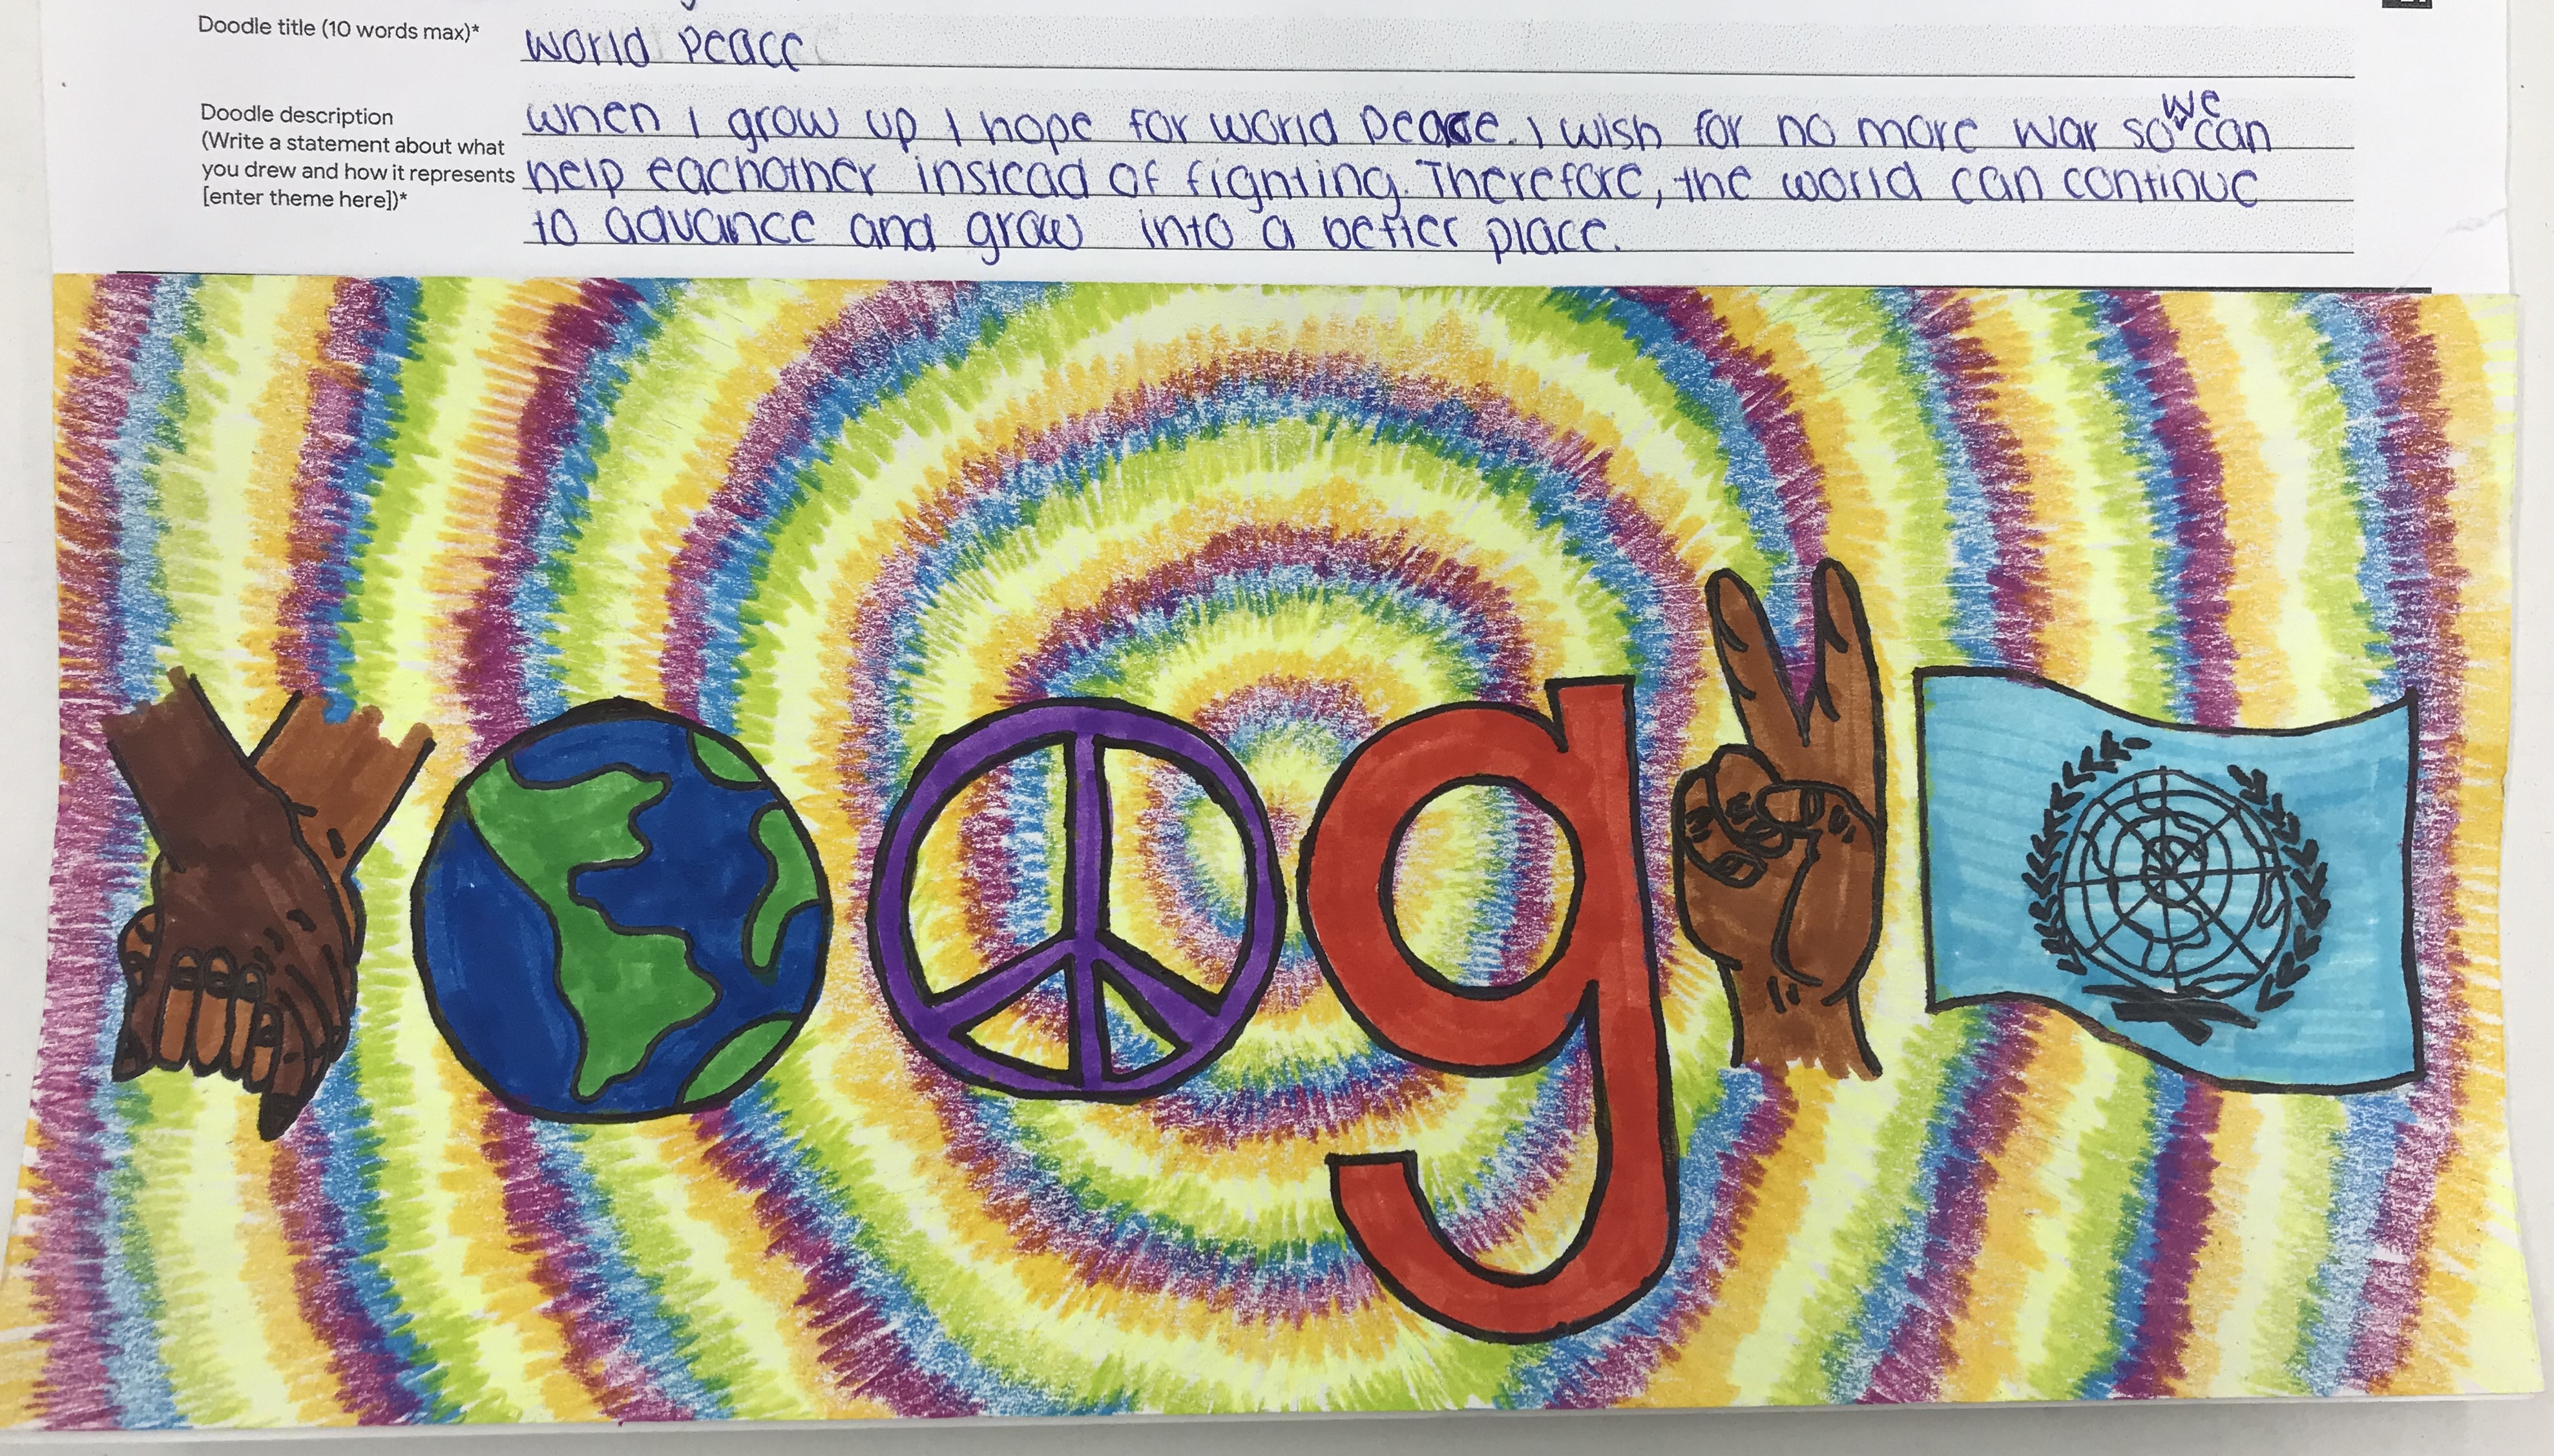 Doodle title (10 words max)* World Peace
Doodle description
(Write a statement about what
you drew and how it represents
[enter theme here])*
when I grow up I hope for world peace. I wish for no more war so we can
help eachother instead of fighting. Therefore, the world can continue
to advance and grow into a better place.
g